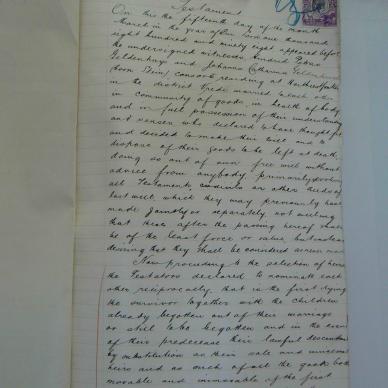 Testament
On this the fifteenth day of the month
March in the year after one thousand
eight hundred and ninety eight appeared before
the undersigned witnesses, Petrus
Geldenhuys and Johanna Catharina Geldenhuys
(born), consorts residing at
in the district Vrede married to each other
in community of goods, in health of body
and in full possession of their understanding
and senses who declared to have thought fit
and decided to make their will and to
dispose of their goods to be left at death,
doing so out of own free will without
advice from anybody, primarily
all Testaments, codicils or other deeds of
last will, which they may previously have
made jointly or separately, not willing
that these after the passing hereof shall
be of the least force or value, but instead
desiring that they shall be considered
Now proceeding to the selection of heirs
the Testators declared to nominate each
other reciprocally that is the first dying
the survivor together with the children
already begotten out of their marriage
or still to be begotten and in the event
of their predecease their lawful descendants
by substitution as their sole and universal
heirs and as such of all the goods both
movable and immovable of the first